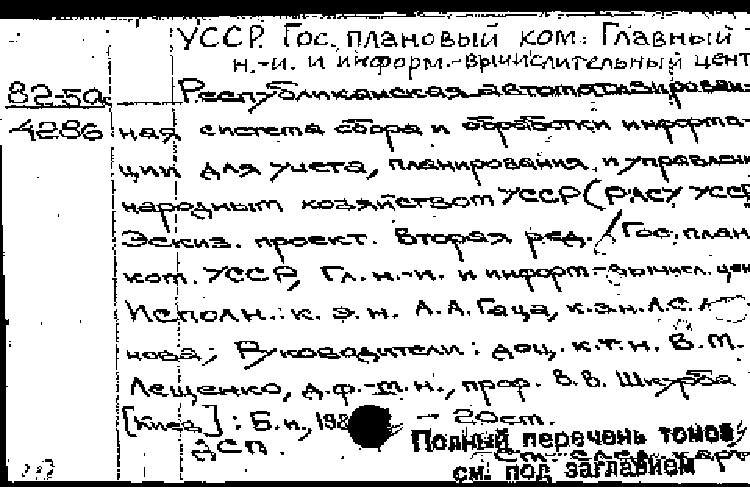 УССР. Гос. плановый ком. Главный
н.-и. и информ.-вычислительный цент
82-5а Республиканская автоматизирован-
4286 ная система сбора и обработки информа-
ции для учета, планирования и управлен
народным хозяйством УССР (РАСУ УССР
Эскиз. проект. Вторая ред. / Гос. план.
ком. УССР, Гл. н.-и. и информ.-вычисл. цен
Исполн.: к. э. н. А.А. Гаца, к.э.н. Л.С.
нова; Руководители: доц. к.т.н. В.М.
Лещенко, д.ф.-м.н., проф. В.В. Шкурба
[Киев] : Б.и., 198 - 20см.
ДСП.
Полный перечень томов
см. под заглавием